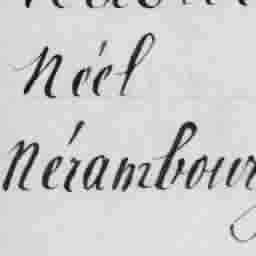 Néel
Nérambourg